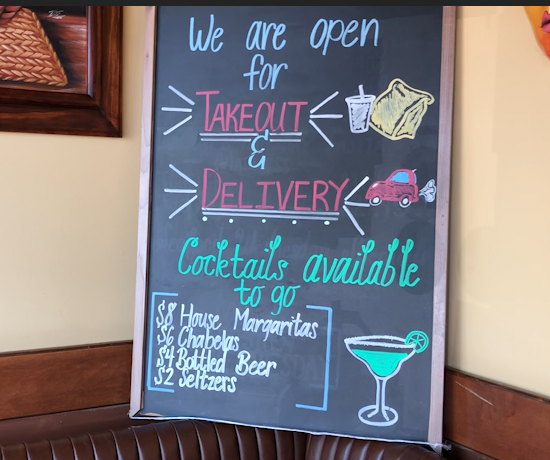 We are open
for
TAKEOUT
&
DELIVERY
Cocktails available
to go
$8 House Margaritas
$6 Chabelas
$4 Bottled Beer
$2 Seltzers